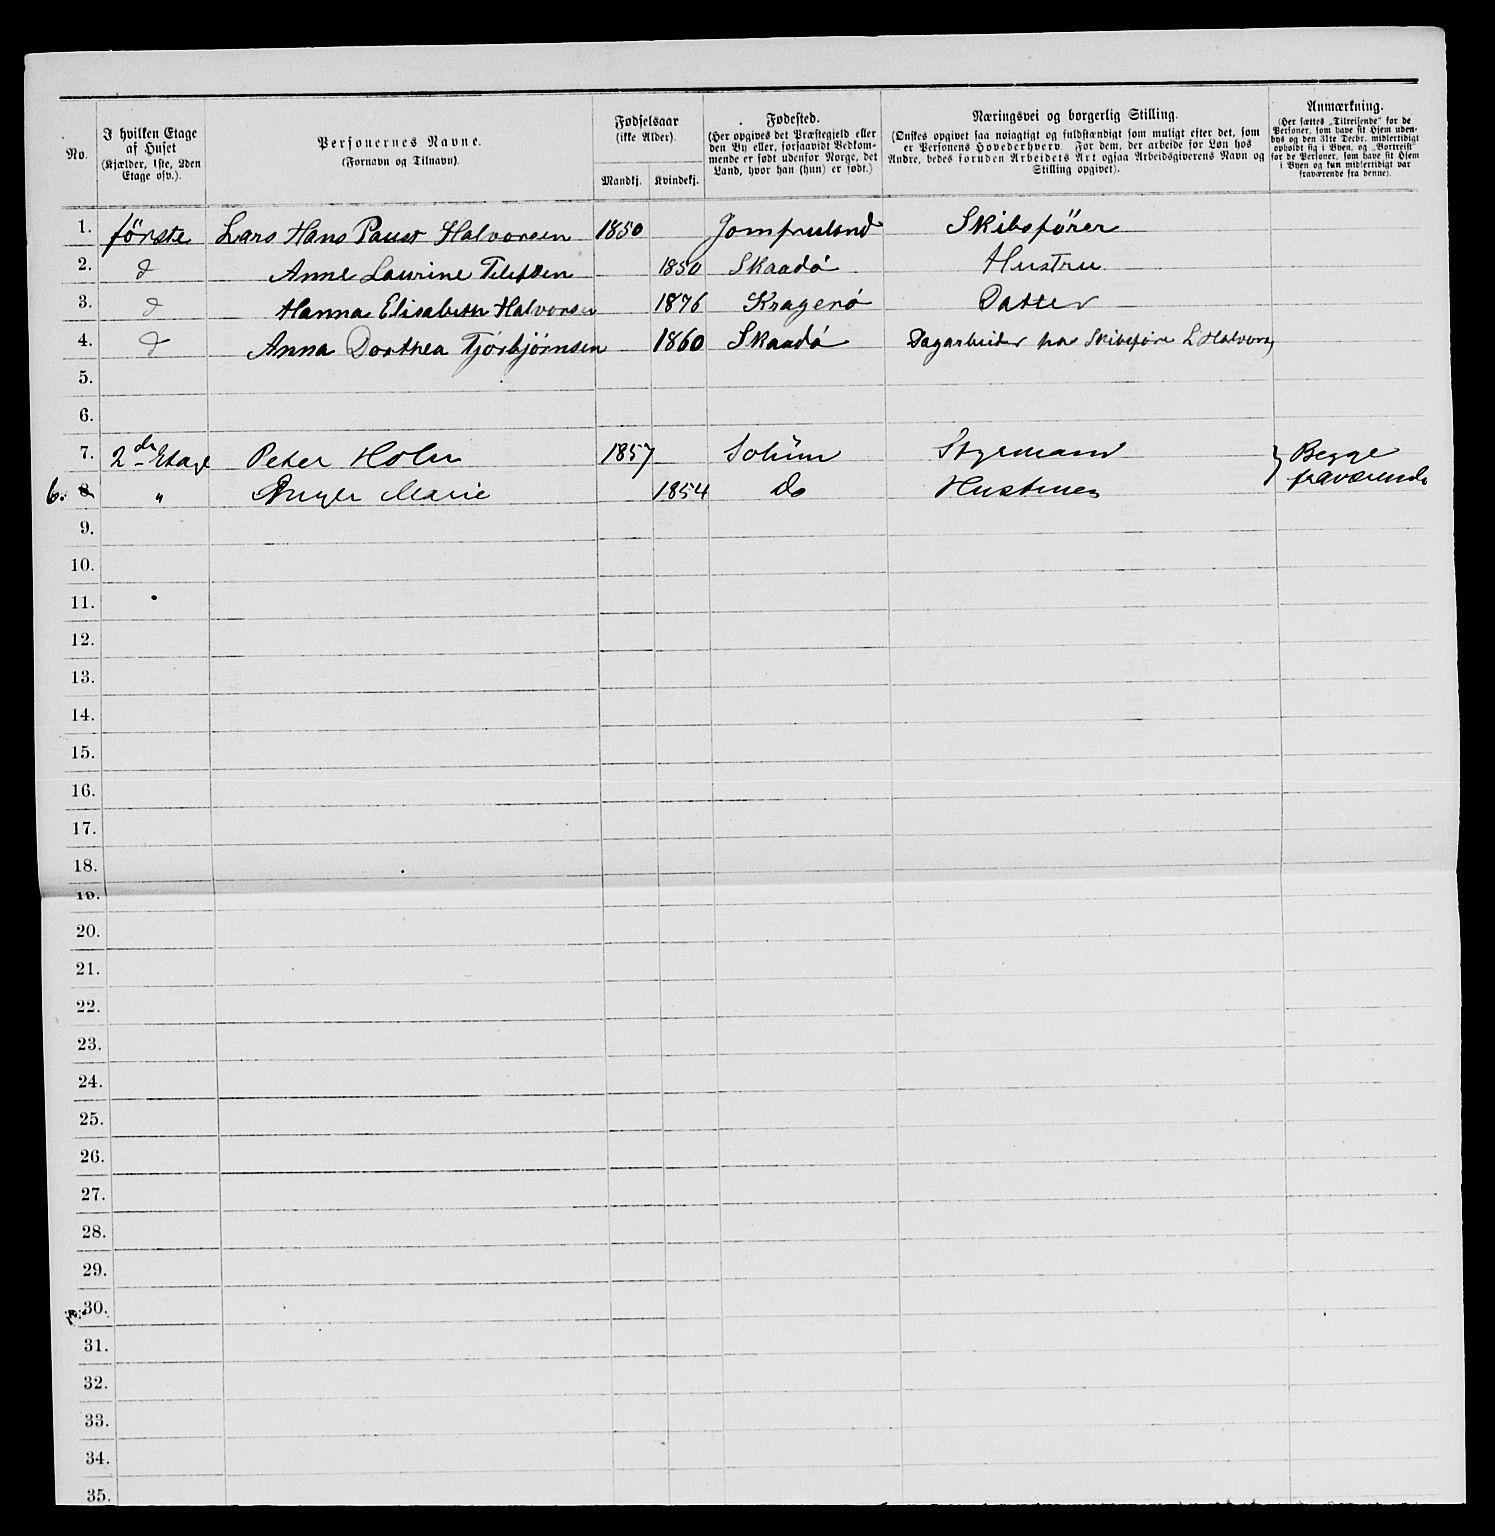 No.
I hvilken Etage af Huset
(Kjælder, 1ste, 2den Etage osv.).
Personernes Navne.
(Fornavn og Tilnavn).
Fødselsaar
(ikke Alder).
Mandkj. Kvindekj.
Fødested.
(Her opgives det Præstegjeld eller
den By eller, forsaavidt Vedkom-
mende er født udenfor Norge, det
Land, hvor han (hun) er født.)
Næringsvei og borgerlig Stilling.
(Ønskes opgivet saa nøiagtigt og fuldstændigt som muligt efter det, som
er Personens Hovederhverv. For dem, der arbeide for Løn hos
Andre, bedes foruden Arbeidets Art ogsaa Arbeidsgiverens Navn og
Stilling opgivet).
Anmærkning.
(Her sættes „Tilreisende“ for de
Personer, som have sit Hjem uden-
bys og den 31te Decbr. midlertidigt
opholdt sig i Byen, og „Bortreist“
for de Personer, som have sit Hjem
i Byen og kun midlertidigt var
fraværende fra denne).
1. første Lars Hans Paust Halvorsen 1850 Jomfruland Skibsfører
2. d Anne Laurine 1850 Skaadö Hustru
3. d Hanna Elisabeth Halvorsen 1876 Kragerö Datter
4. d Anna Dorthea Tjórbjörnsen 1860 Skaadö Dagarbeider hos Skibsföre L Halvors
5.
6.
7. 2de Etage Peter Holm 1857 Solum Styrmand } Begge
6. 8. " Marie 1854 Do fraværende
9.
10.
11.
12.
13.
14.
15.
16.
17.
18.
19.
20.
21.
22.
23.
24.
25.
26.
27.
28.
29.
30.
31.
32.
33.
34.
35.